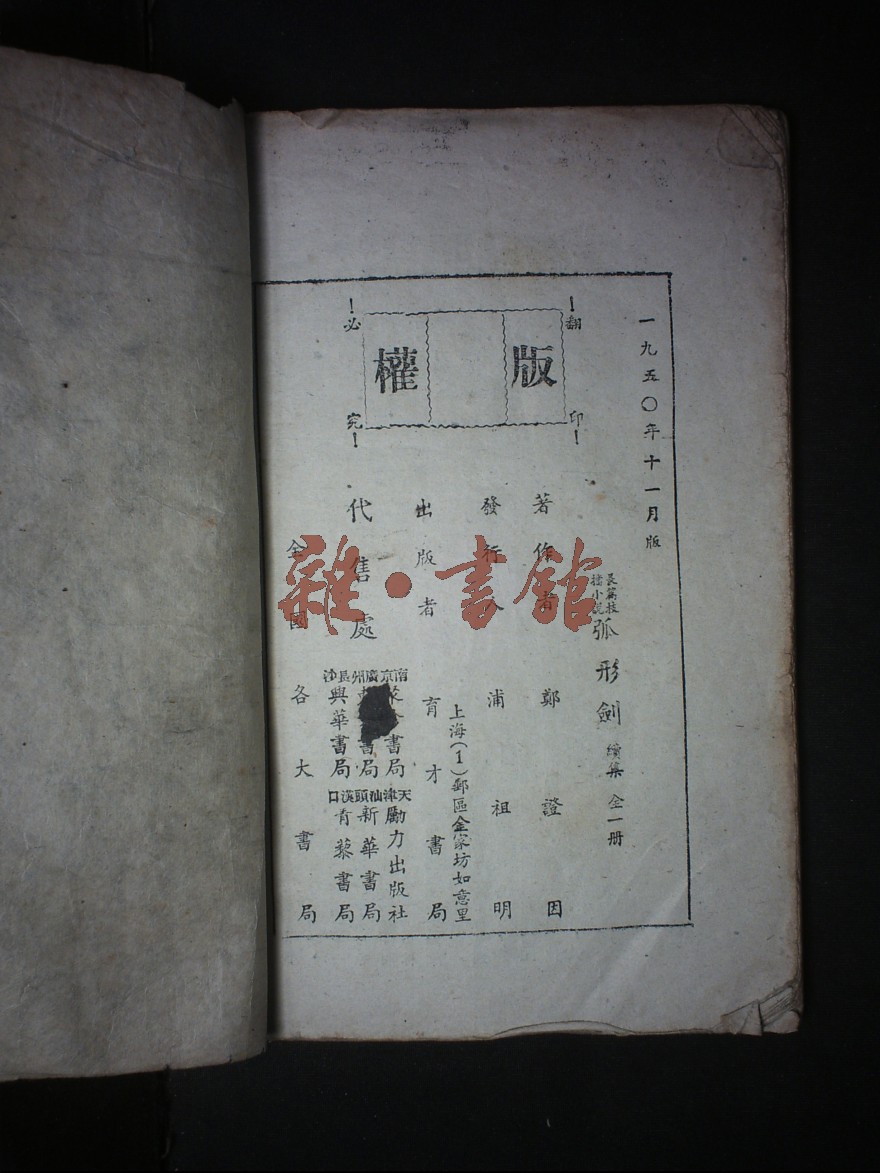 一九五〇年十一月版
長篇技擊小說
弧形劍 續集 全一册
版權
翻印必究
著作者 鄭證因
發行人 浦祖明
出版者 育才書局
上海(1)郵區金家坊如意里
代售處
南京 書局
廣州 書局
長沙 興華書局
天津 勵力出版社
汕頭 新華書局
漢口 青藜書局
全國各大書局
雜·書館